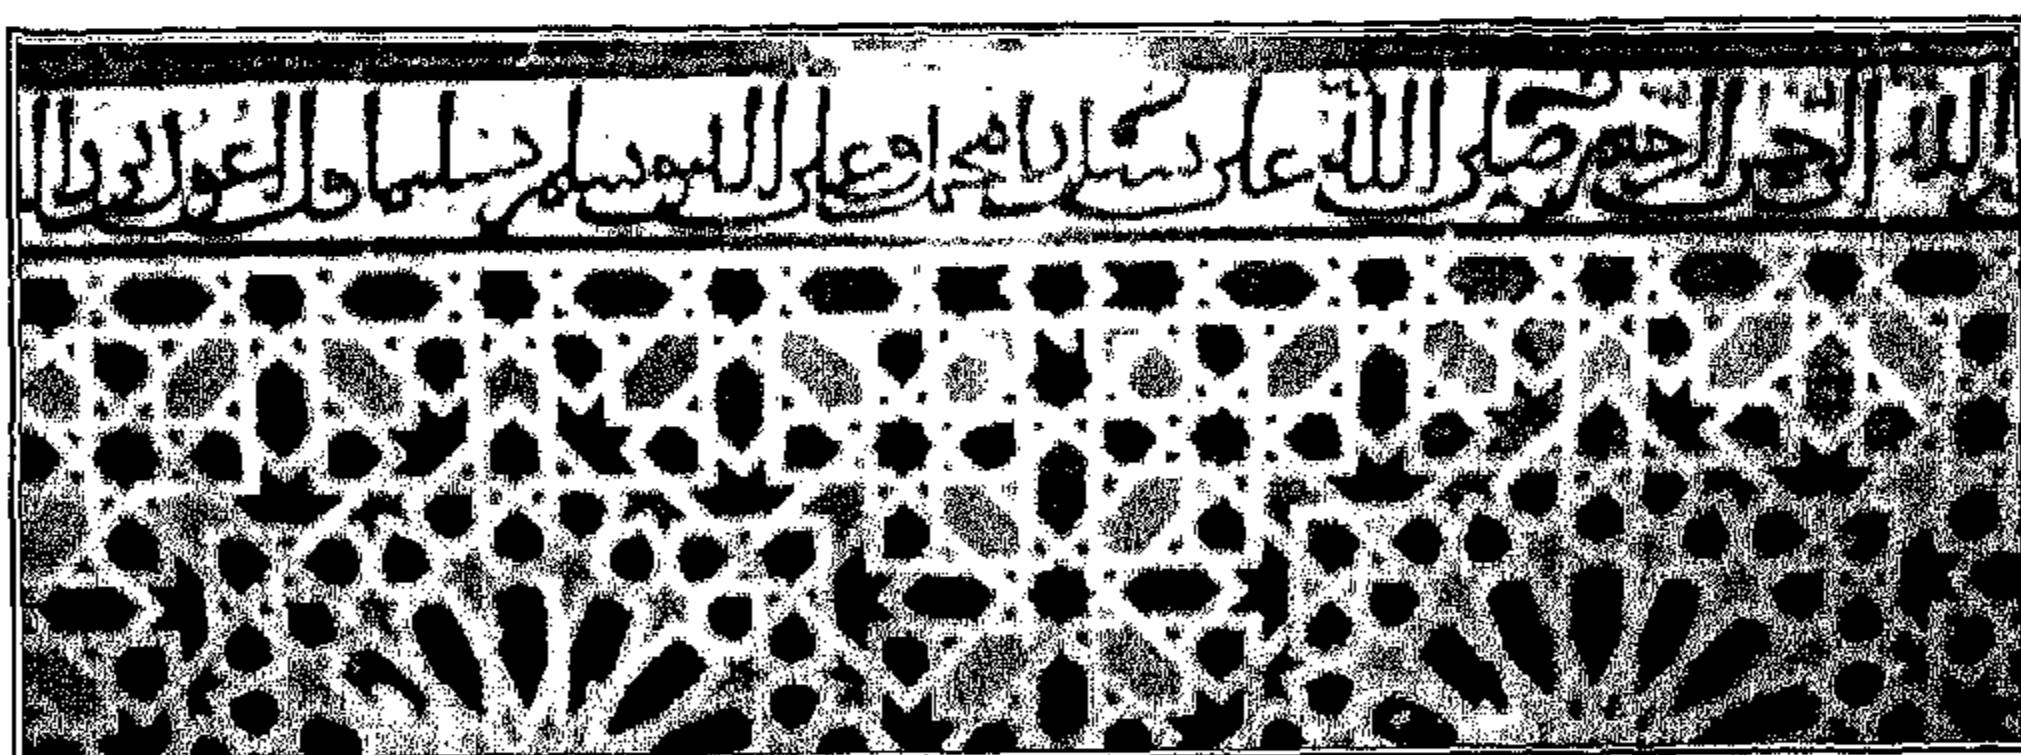 الله الرحمن الرحيم صلى الله على سيدنا محمد وعلى اله وسلم تسليما ولا غالب